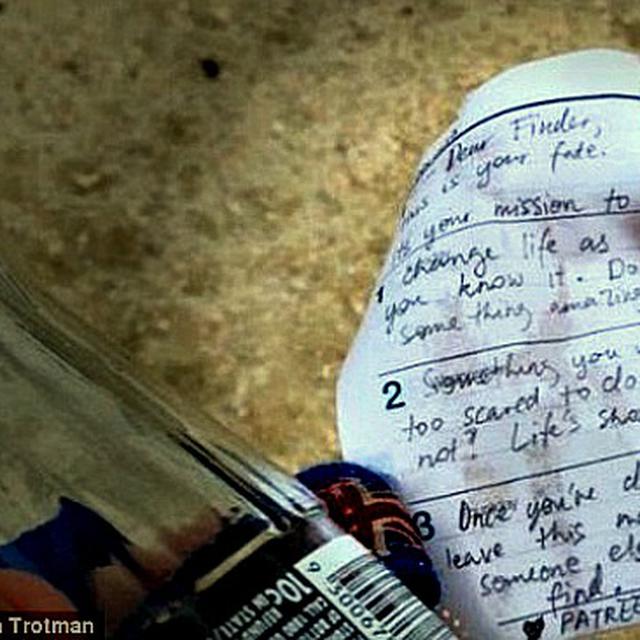 Dear Finder,
this is your fate.
Its your mission to
1 change life as
you know it. Do
something amazin
2 Something you
too scared to do
not? Life's sho
3 Once you've d
leave this m
someone els
find.
PATRE
10c
9 30067
n Trotman